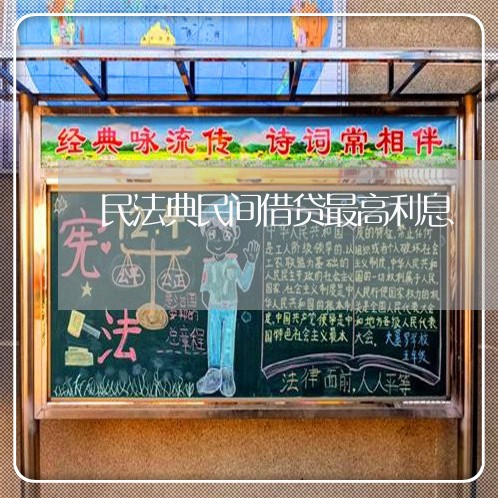 经典咏流传 诗词常相伴
民法典民间借贷最高利息
宪
法
公平
公正
总章程
中华人民共和国
是工人阶级领导的,以
工农联盟为基础的
人民民主专政的社会主义
国家,社会主义制度是中
华人民共和国的根本制
度,中国共产党领导是中
国特色社会主义最本
质的特征,禁止任何
组织或者个人破坏社会
主义制度,中华人民共和
国的一切权利属于人民,
人民行使国家权力的机
关是全国人民代表大会
和地方各级人民代表
大会。
五年级
法律面前,人人平等